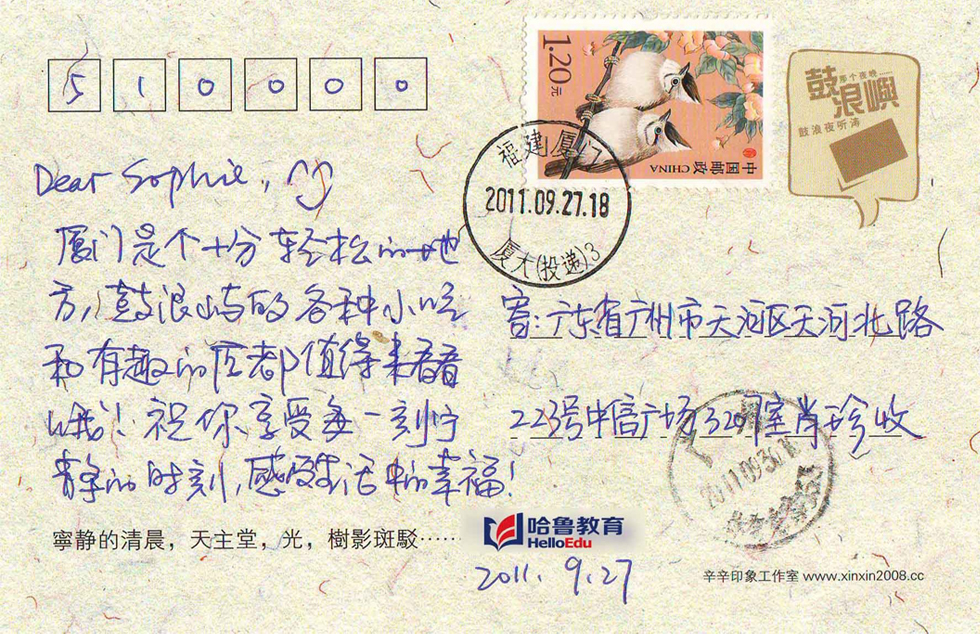 510000
1.20元
中国邮政 CHINA
鼓浪嶼
那个夜晚
鼓浪夜听涛
福建厦门
2011.09.27.18
厦大(投递)3
Dear Sophie,
厦门是个十分轻松的地
方,鼓浪屿的各种小吃
和有趣的店都值得来看看
哦!祝你享受每一刻宁
静的时刻,感受生活中的幸福!
寄:广东省广州市天河区天河北路
223号中信广场3207室肖珍收
2011.09.30.18
寧静的清晨,天主堂,光,樹影斑駁……
哈鲁教育
HelloEdu
2011.9.27
辛辛印象工作室 www.xinxin2008.cc